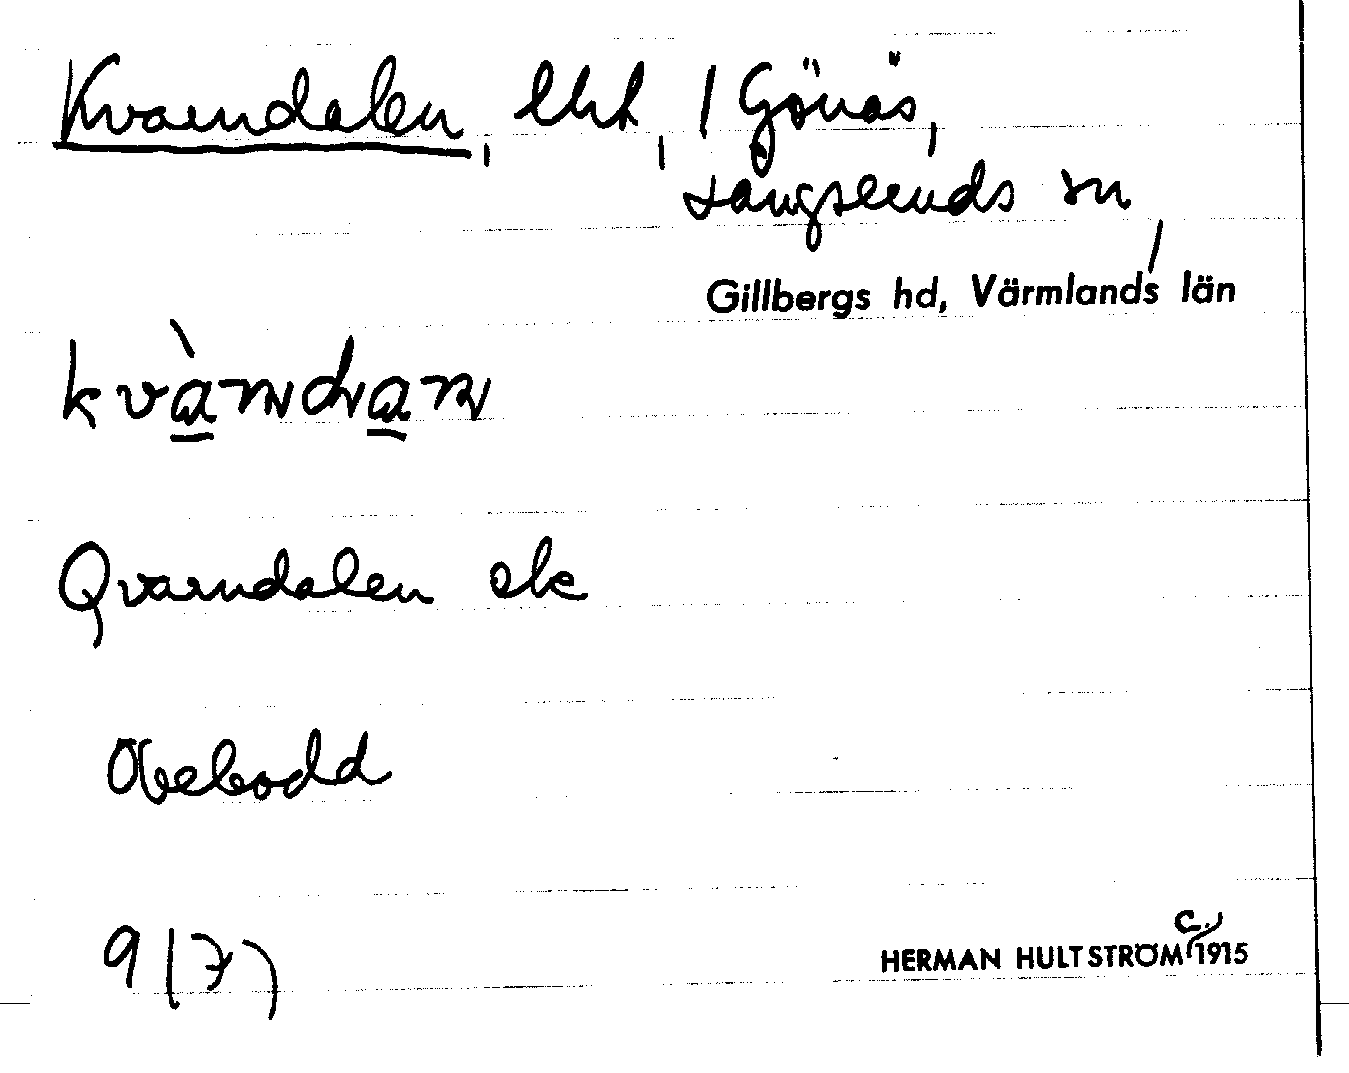 Kvarndalen, lht, 1 Gönäs,
Långseruds sn,
Gillbergs hd, Värmlands län
kvàṉdaṉ
Qvarndalen ek
Obebodd
9 (7)
HERMAN HULTSTRÖM c. 1915